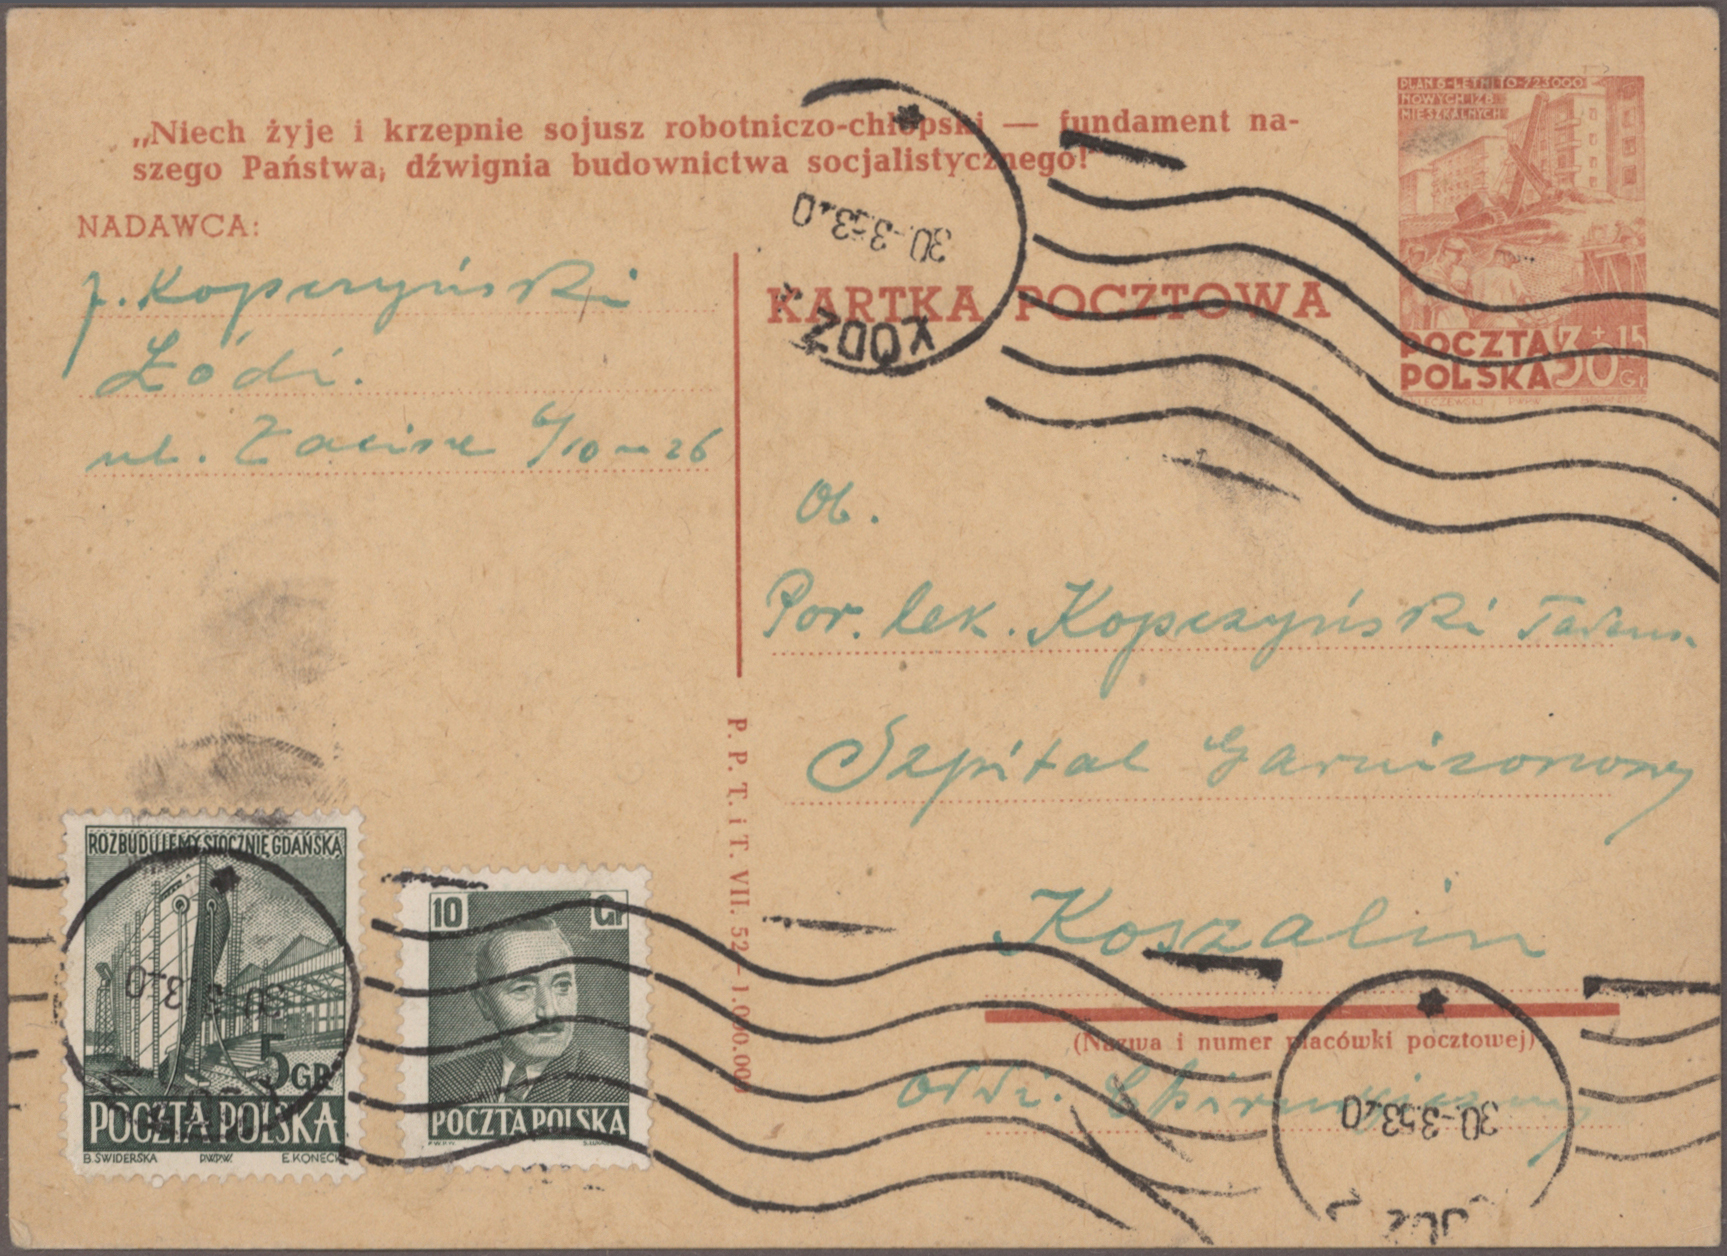 „Niech żyje i krzepnie sojusz robotniczo-chłopski — fundament na-
szego Państwa, dźwignia budownictwa socjalistycznego!"
NADAWCA:
J. Kopczyński
Łódź.
ul. Zacisze 6/10 – 26
PLAN 6-LETNI TO 723000
NOWYCH IZB
MIESZKALNYCH
POCZTA
POLSKA
30 + 15
Gr
30.-3.53.
ŁÓDŹ
KARTKA POCZTOWA
Ob.
Por. lek. Kopczyński Tadeusz
Szpital Garnizonowy
Koszalin
(Nazwa i numer placówki pocztowej)
Oddz. Chirurgiczny
P. P. T. i T. VII. 52 – 1.000.000
ROZBUDUJEMY STOCZNIĘ GDAŃSKĄ
5 GR
POCZTA POLSKA
B. ŚWIDERSKA PWPW. E. KONECKI
10 Gr
POCZTA POLSKA
30.-3.53.